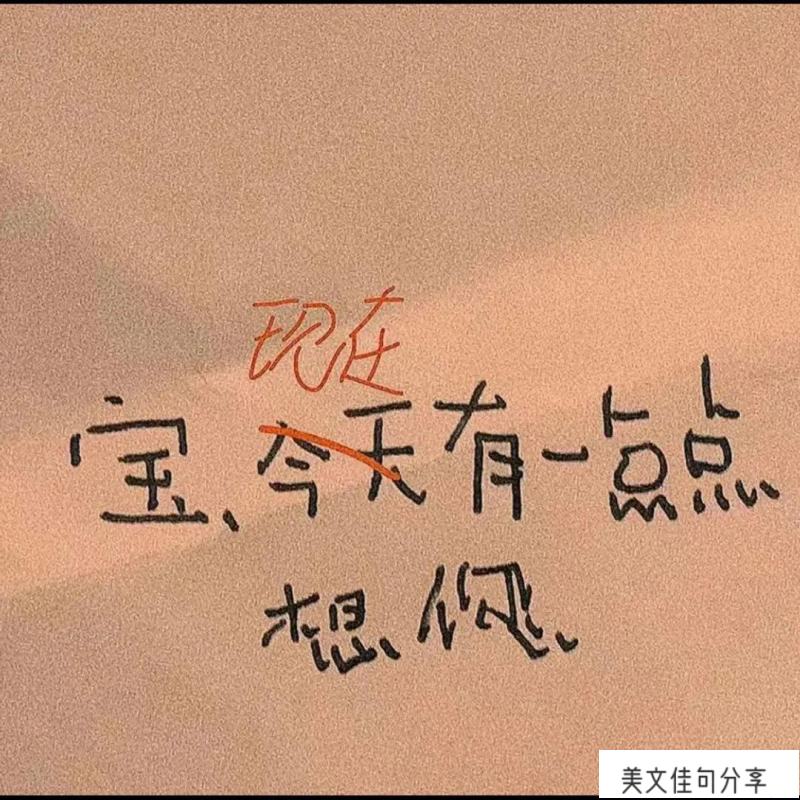 现在
宝、今天有一点点
想你、
美文佳句分享